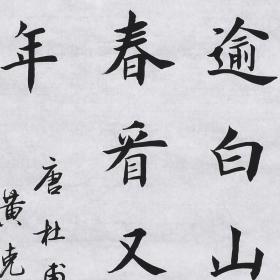 逾白山
春看又
年
唐杜甫
黄克